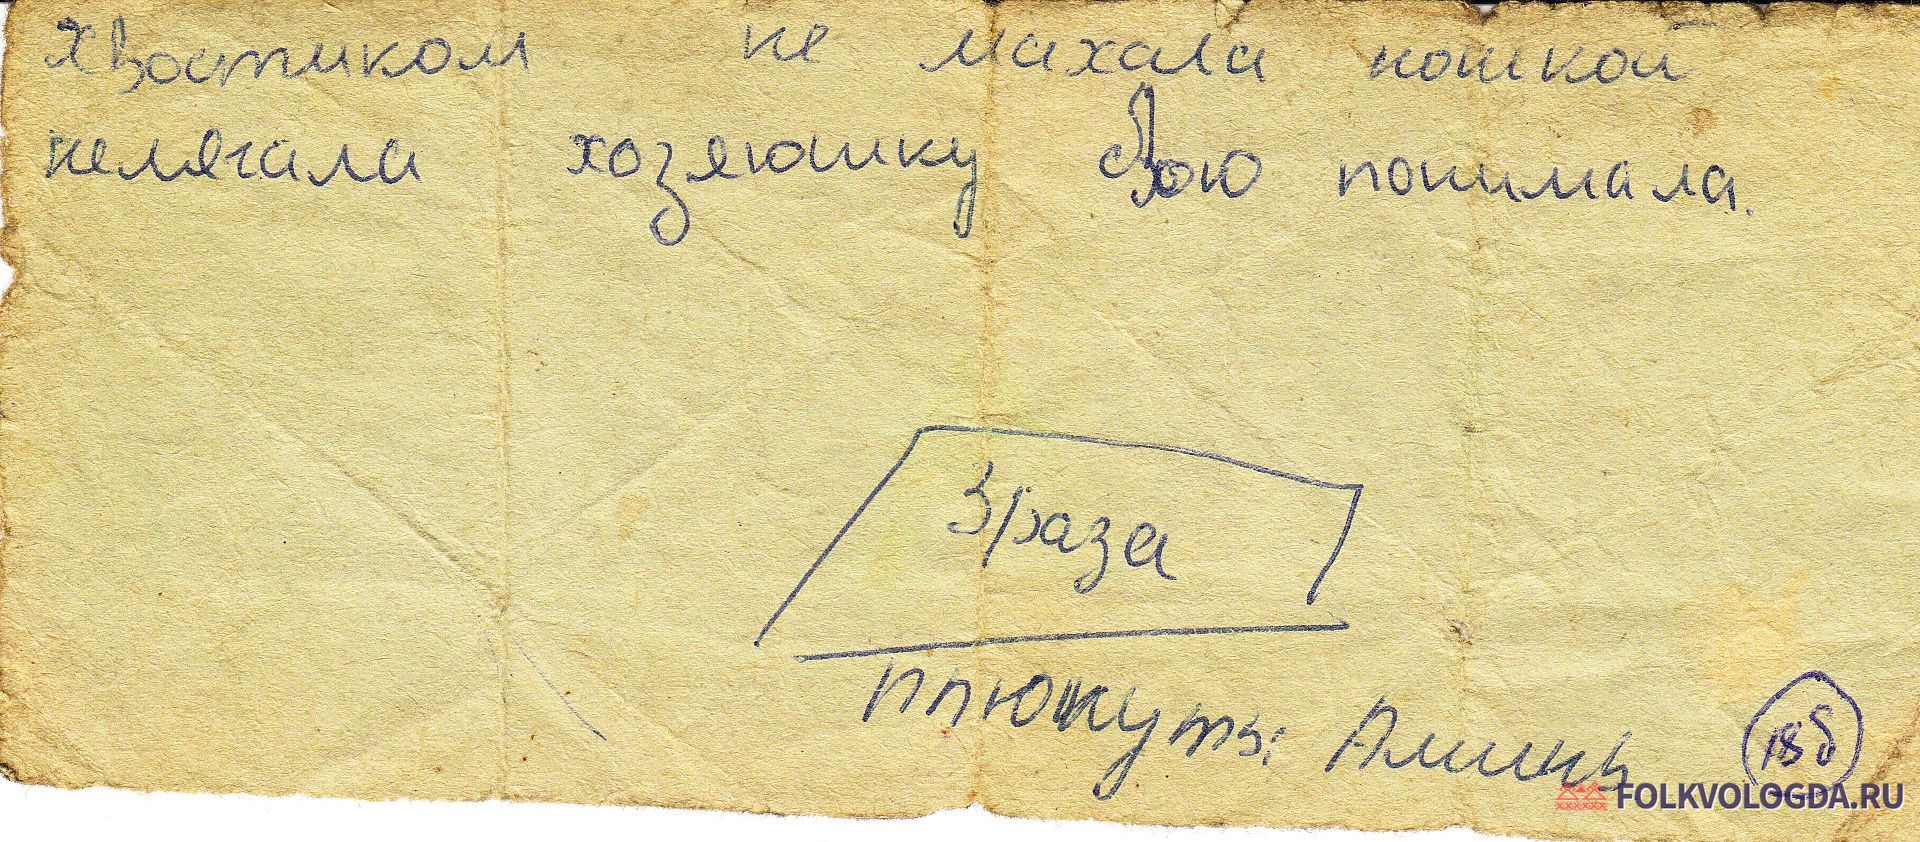 хвостиком не махала ножкой
нелягала хозяюшку свою понимала.
3 раза
плюнуть: Аминь
18б
FOLKVOLOGDA.RU